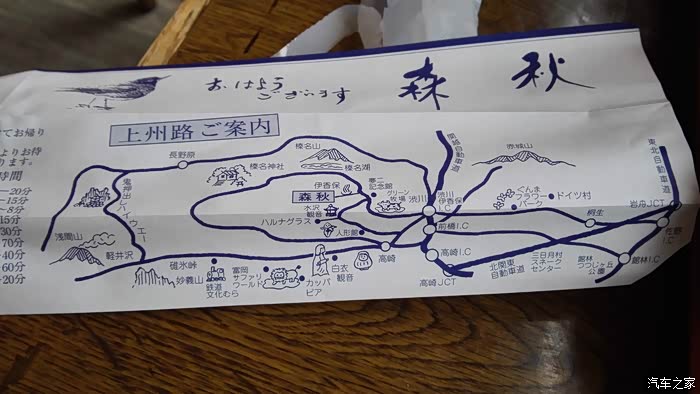 おはよう
ございます
森 秋
上州路ご案内
てお帰り
よりお待
ります。
時間
20分
15分
8分
15分
30分
70分
40分
60分
20分
長野原
榛名山
榛名神社
榛名湖
鬼押出しハイウェー
浅間山
軽井沢
伊香保
森秋
水沢
観音
ハルナグラス
人形館
夢二
記念館
グリーン
牧場
渋川
渋川
伊香保
I.C
関越自動車道
赤城山
東北自動車道
ぐんま
フラワー
パーク
ドイツ村
岩舟JCT
桐生
佐野
I.C
前橋I.C
高崎
高崎I.C
高崎JCT
北関東
自動車道
三日月村
スネーク
センター
館林
つつじヶ丘
公園
館林I.C
碓氷峠
妙義山
鉄道
文化むら
富岡
サファリ
ワールド
カッパ
ピア
白衣
観音
汽车之家